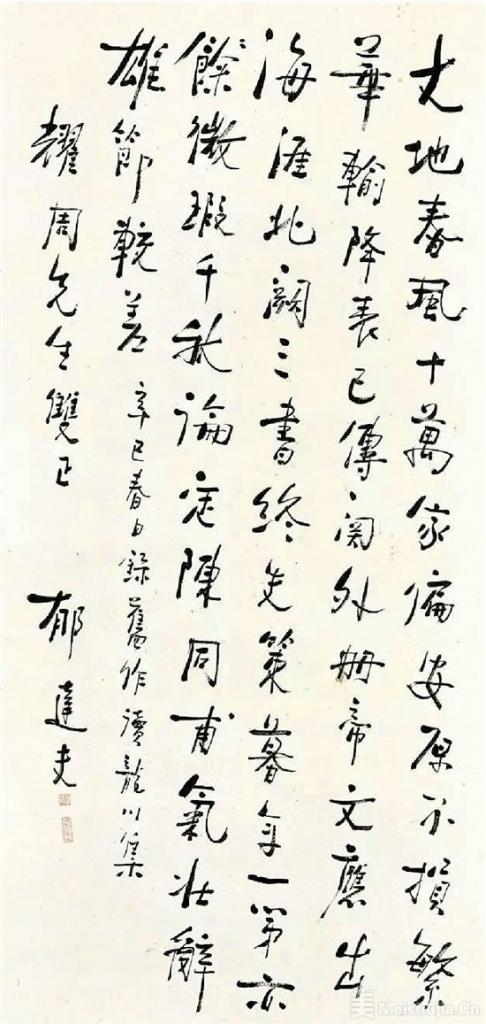 大地春風十萬家偏安原不損繁
華輸降表已傳関外冊帝文應出
海涯北闕三書終失策暮年一第亦
餘微瑕千秋論定陳同甫氣壯辭
雄節較差 辛巳春日錄舊作讀龍川集
耀周先生雙正 郁達夫
Meishujia.Cn